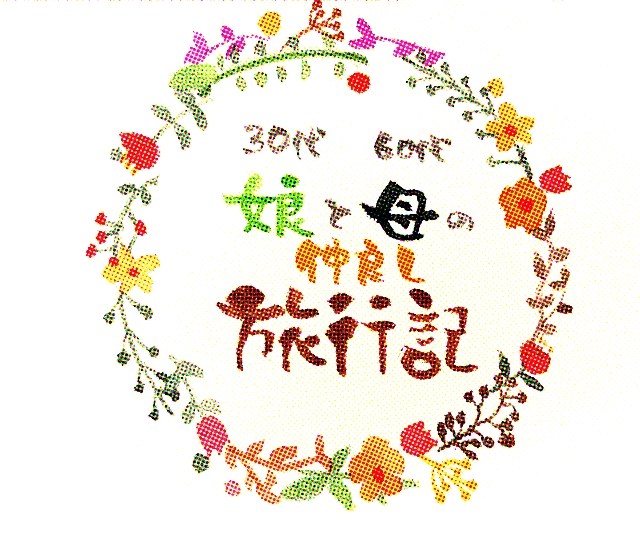 30代 60代
娘と母の
仲良し
旅行記